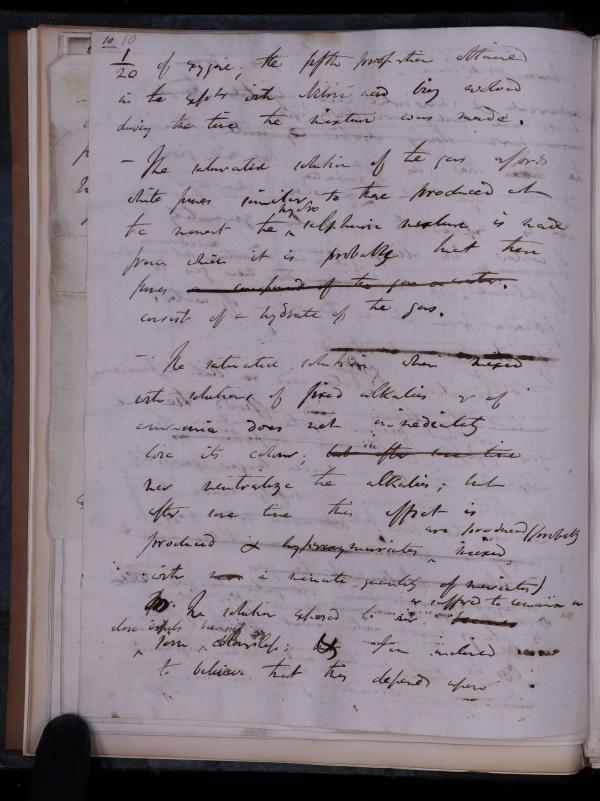 10 10
1/20 of oxygene; the fifth proportion obtained
in the expts with Nitric acid being evolved
during the time the mixture was made.
— The saturated solution of the gas affords
white fumes similar to those produced at
the moment the hydro sulphuric mixture is made
from which it is probable that these
fumes a compound of the gas or water.
consist of a hydrate of the gas.
— The saturated solution when mixed
with solutions of fixed alkalies or of
ammonia does not immediately
lose its colour; but after some time
nor neutralize the alkalies; but
after some time this effect is
produced & hyperoxymuriates are produced (probably mixed
with a minute quantity of muriates)
The solution exposed to air or suffered to remain in
close vessels becomes colourless; I am inclined
to believe that this depends upon